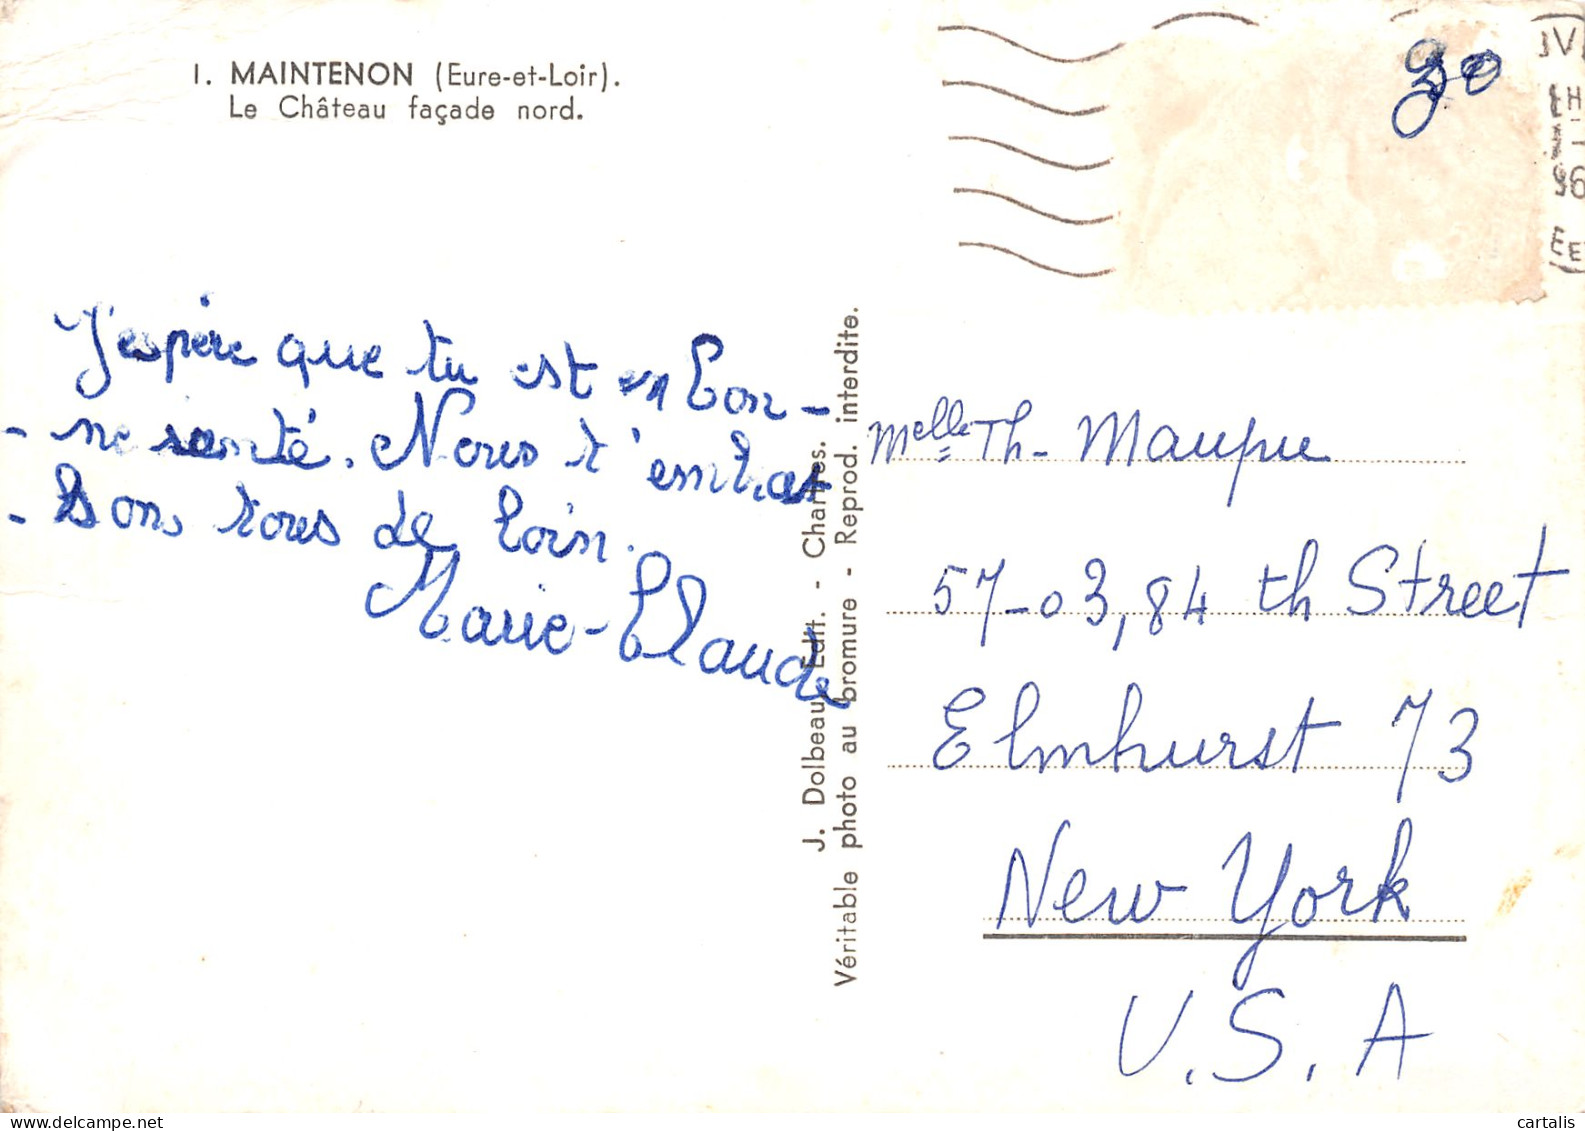 1. MAINTENON (Eure-et-Loir).
Le Château façade nord.
30
J'espère que tu est en bon-
-ne santé. Nous t'embras
-sons tous de loin.
Marie-Claude
J. Dolbeau Edit. - Chartres.
Véritable photo au bromure - Reprod. interdite.
Melle Th. Maupu
57-03, 84 th Street
Elmhurst 73
New York
U.S.A
cartalis